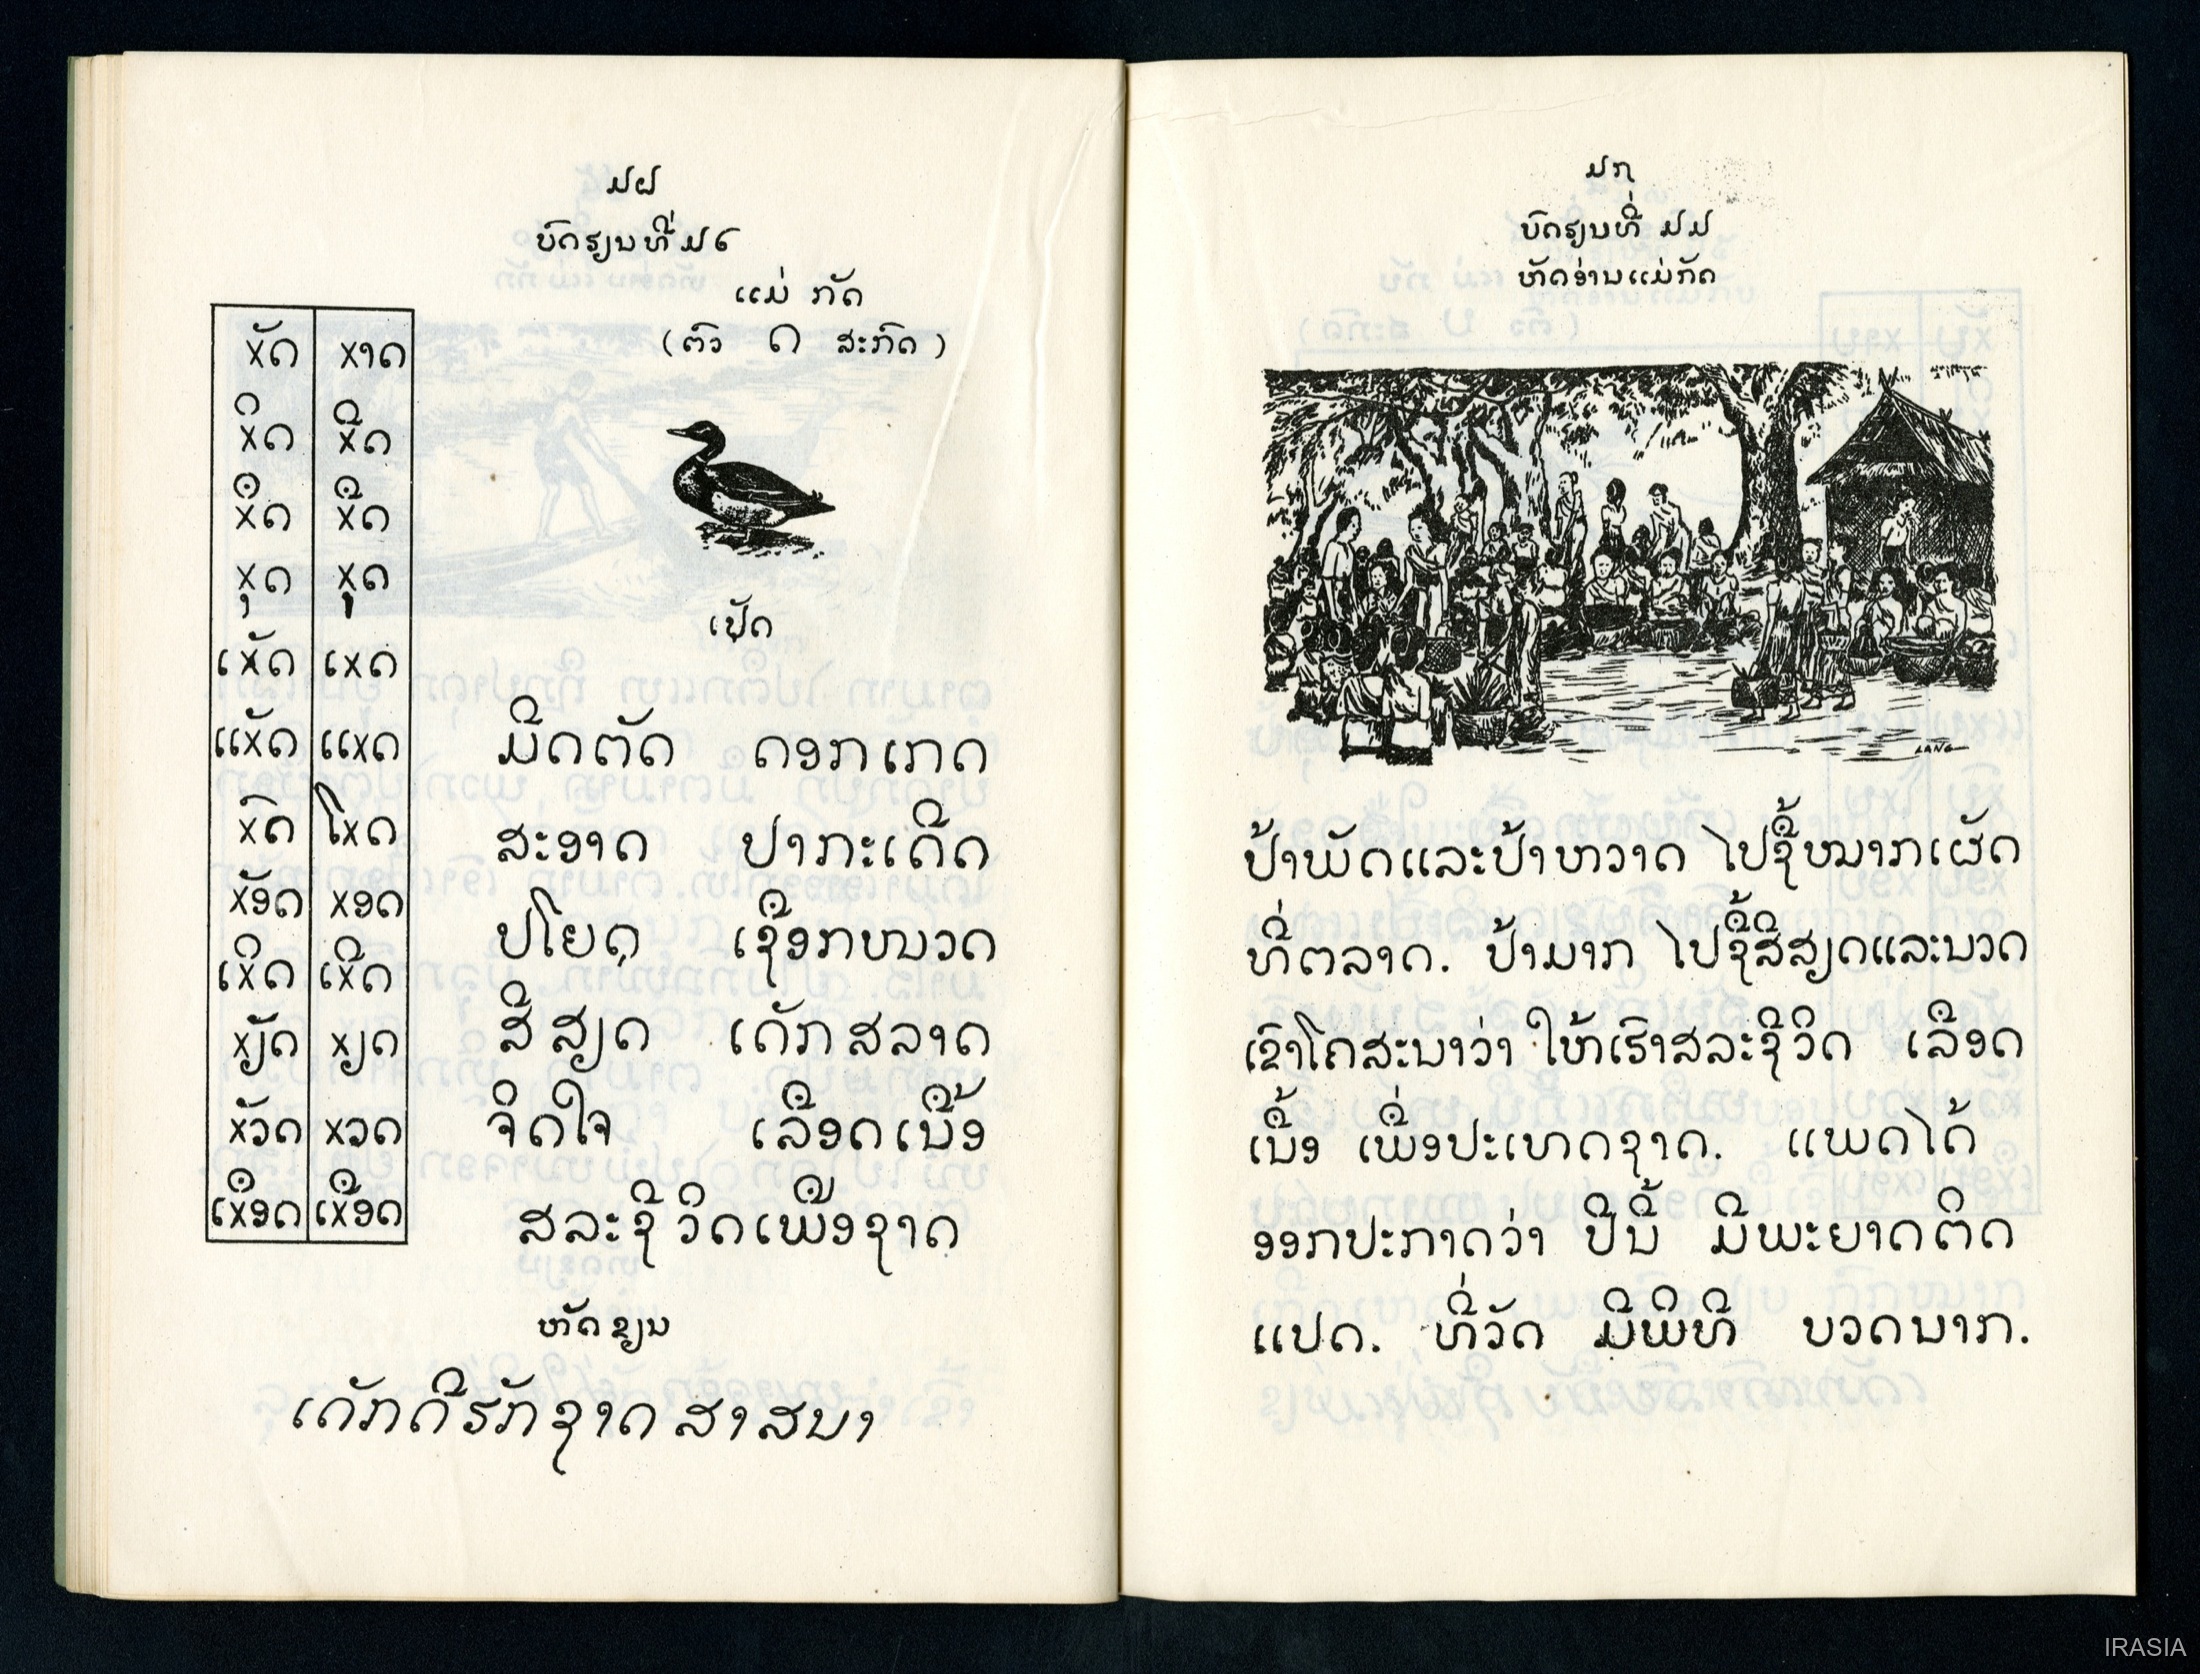 ໒໘
ບົດຮຽນທີ່ ໒໑
ແມ່ ກັດ
(ຕົວ ດ ສະກົດ)
xັດ xາດ
xິດ xີດ
xຶດ xືດ
xຸດ xູດ
ເxັດ ເxດ
ແxັດ ແxດ
xົດ ໂxດ
xັອດ xອດ
ເxິດ ເxີດ
xັຽດ xຽດ
xັວດ xວດ
ເxຶອດ ເxືອດ
ເປັດ
ມີດຕັດ ດອກເກດ
ສະອາດ ປາກະເດີດ
ປໂຍດ ເຊືອກໜວດ
ສີສຽດ ເດັກສລາດ
ຈິດໃຈ ເລືອດເນື້ອ
ສລະຊີວິດເພື່ອຊາດ
ຫັດຂຽນ
ເດັກດີຮັກຊາດສາສນາ
໒໙
ບົດຮຽນທີ່ ໒໒
ຫັດອ່ານແມ່ກັດ
LANG
ປ້າພັດແລະປ້າຫວາດ ໄປຊື້ໝາກເຜັດ
ທີ່ຕລາດ. ປ້າມາກ ໄປຊື້ສີສຽດແລະນວດ
ເຂົາໂຄສະນາວ່າ ໃຫ້ເຮົາສລະຊີວິດ ເລືອດ
ເນື້ອ ເພື່ອປະເທດຊາດ. ແພດໄດ້
ອອກປະກາດວ່າ ປີນີ້ ມີພະຍາດຕິດ
ແປດ. ທີ່ວັດ ມີພິທີ ບວດນາກ.
IRASIA